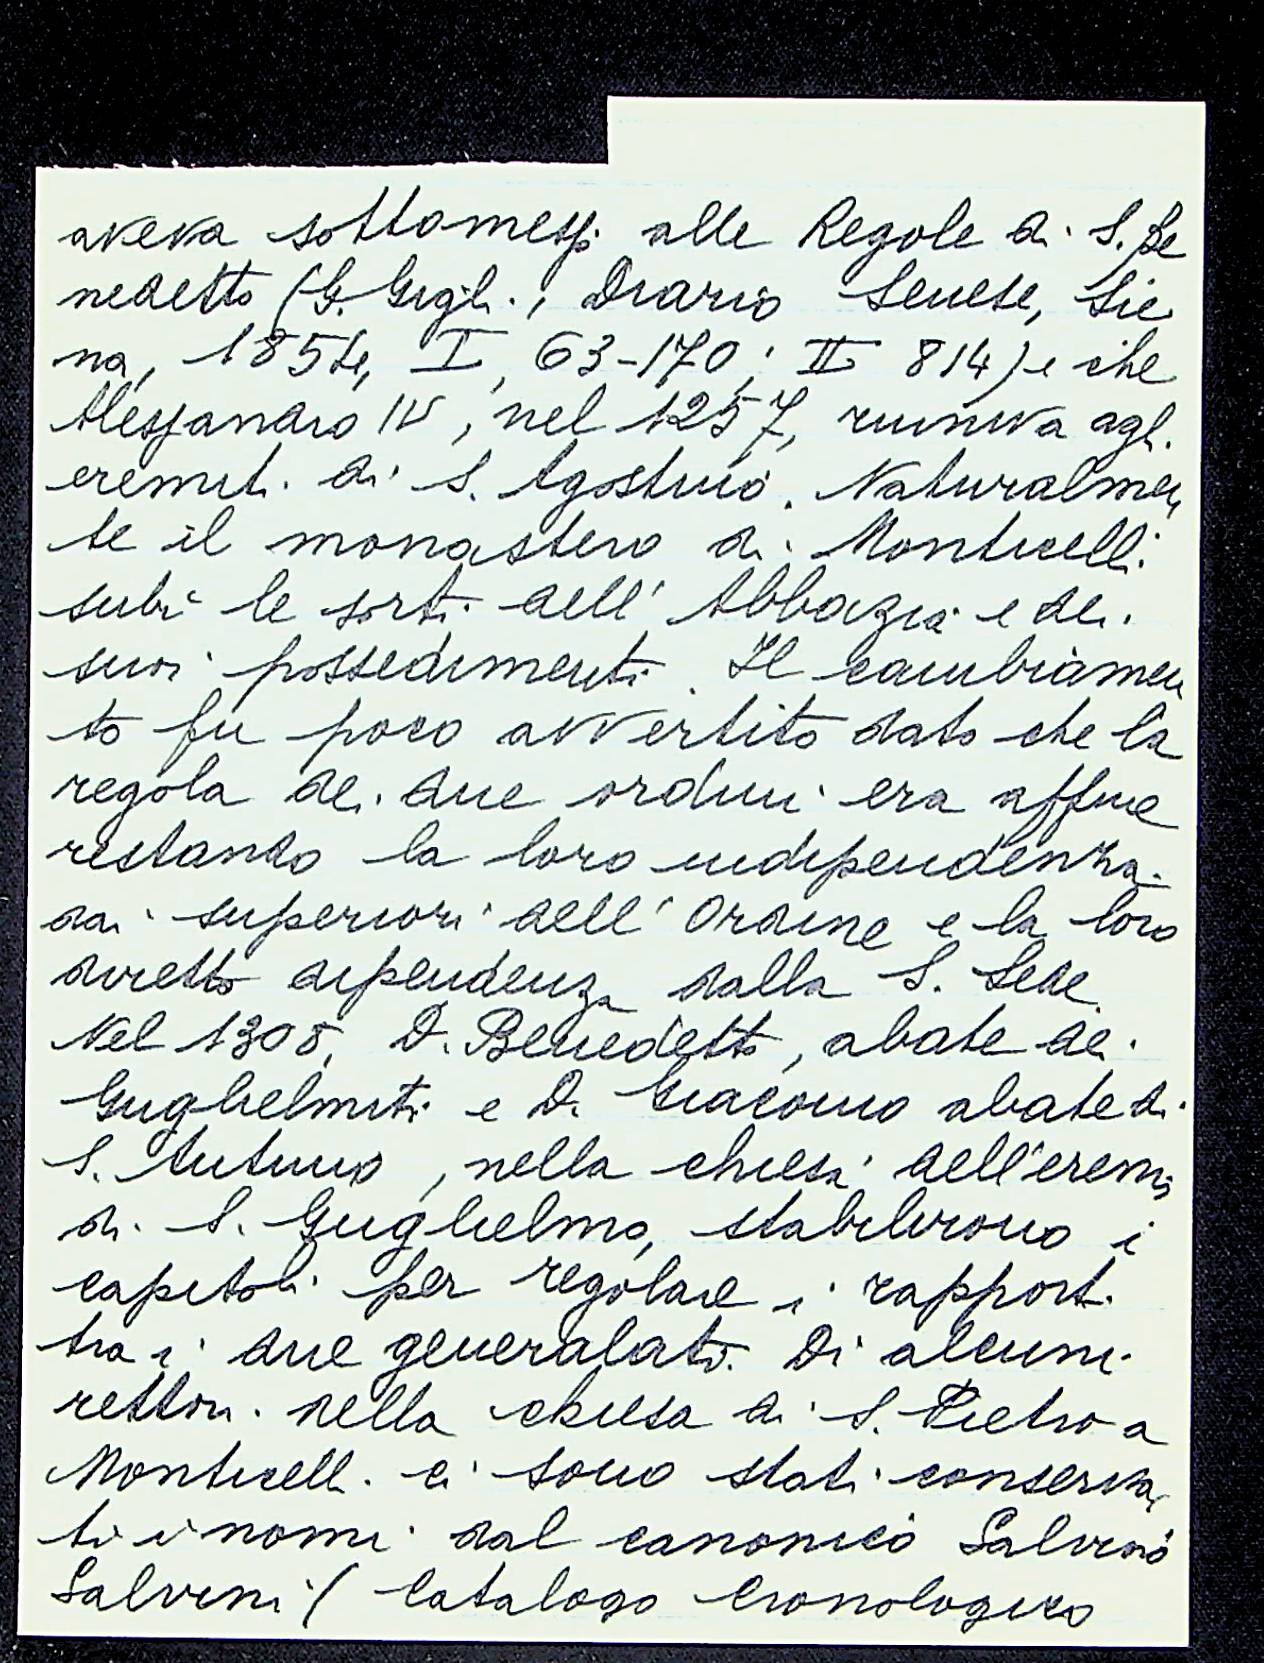 aveva sottomessi alle Regole di S. Be
nedetto (G. Gigli, Diario Senese, Sie
na, 1854, I, 63-170; II 814) e che
Alessandro IV, nel 1257, riuniva agli
eremiti di S. Agostino. Naturalmen
te il monastero di Monticelli
subì le sorti dell'Abbazia e dei
suoi possedimenti. Il cambiamen
to fu poco avvertito dato che la
regola dei due ordini era affine
restando la loro indipendenza
dai superiori dell'Ordine e la loro
diretta dipendenza dalla S. Sede.
Nel 1308, D. Benedetto, abate dei
Guglielmiti e D. Giacomo abate di
S. Antimo, nella chiesa dell'eremo
di S. Guglielmo, stabilirono i
capitoli per regolare i rapporti
tra i due generalati. Di alcuni
rettori nella chiesa di S. Pietro a
Monticelli ci sono stati conserva
ti i nomi dal canonico Salvino
Salvini (Catalogo Cronologico